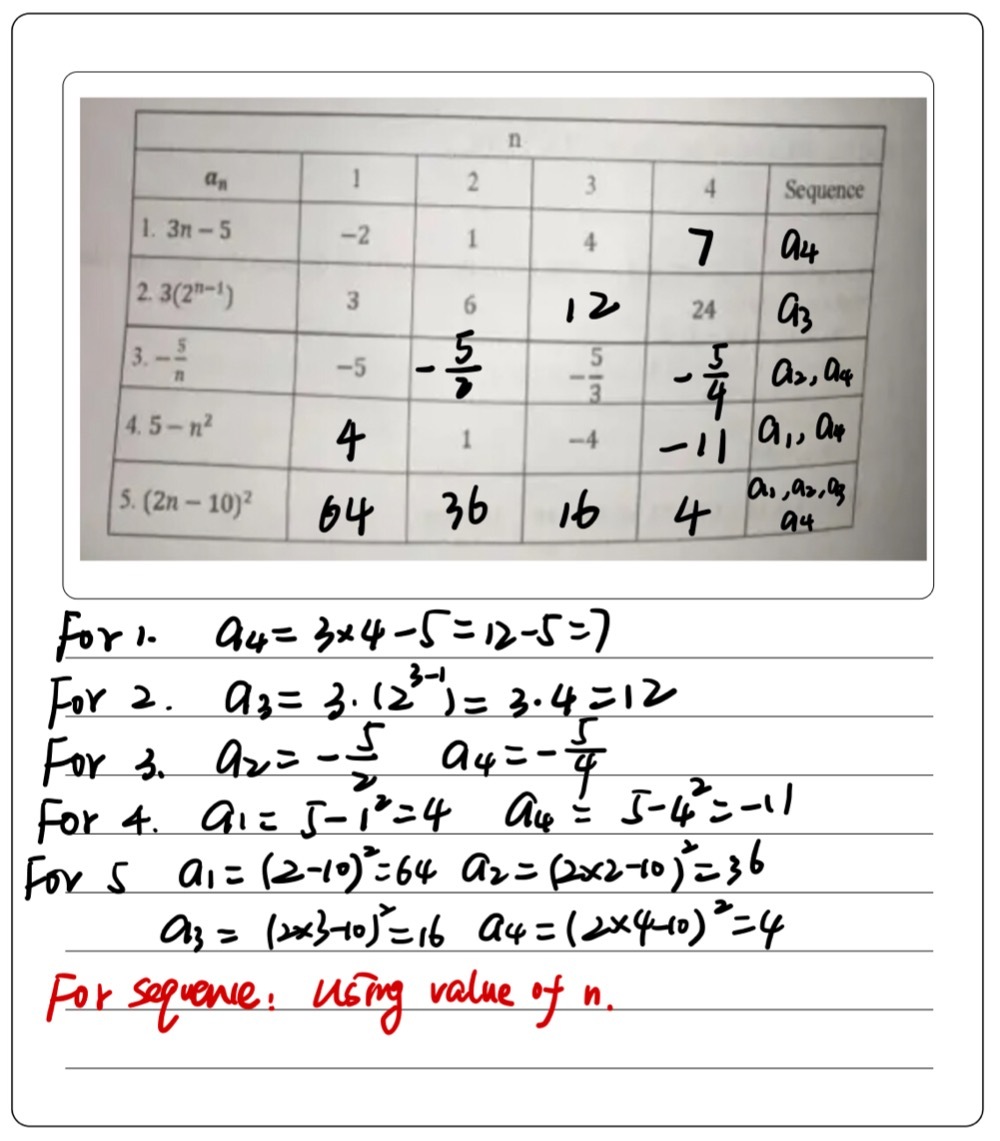 n
aₙ 1 2 3 4 Sequence
1. 3n − 5 −2 1 4 7 a₄
2. 3(2ⁿ⁻¹) 3 6 12 24 a₃
3. −5/n −5 −5/2 −5/3 −5/4 a₂, a₄
4. 5 − n² 4 1 −4 −11 a₁, a₄
5. (2n − 10)² 64 36 16 4 a₁, a₂, a₃
a₄
For 1. a₄ = 3×4 − 5 = 12 − 5 = 7
For 2. a₃ = 3·(2³⁻¹) = 3·4 = 12
For 3. a₂ = −5/2 a₄ = −5/4
For 4. a₁ = 5 − 1² = 4 a₄ = 5 − 4² = −11
For 5 a₁ = (2−10)² = 64 a₂ = (2×2−10)² = 36
a₃ = (2×3−10)² = 16 a₄ = (2×4−10)² = 4
For sequence: Using value of n.